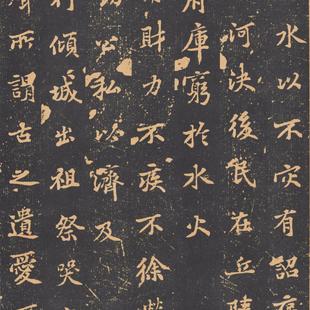 水以不灾有詔
河決後民在丘
庫窮於水火
財力不疾不徐
公私以濟及
傾城出祖祭哭
所謂古之遺愛